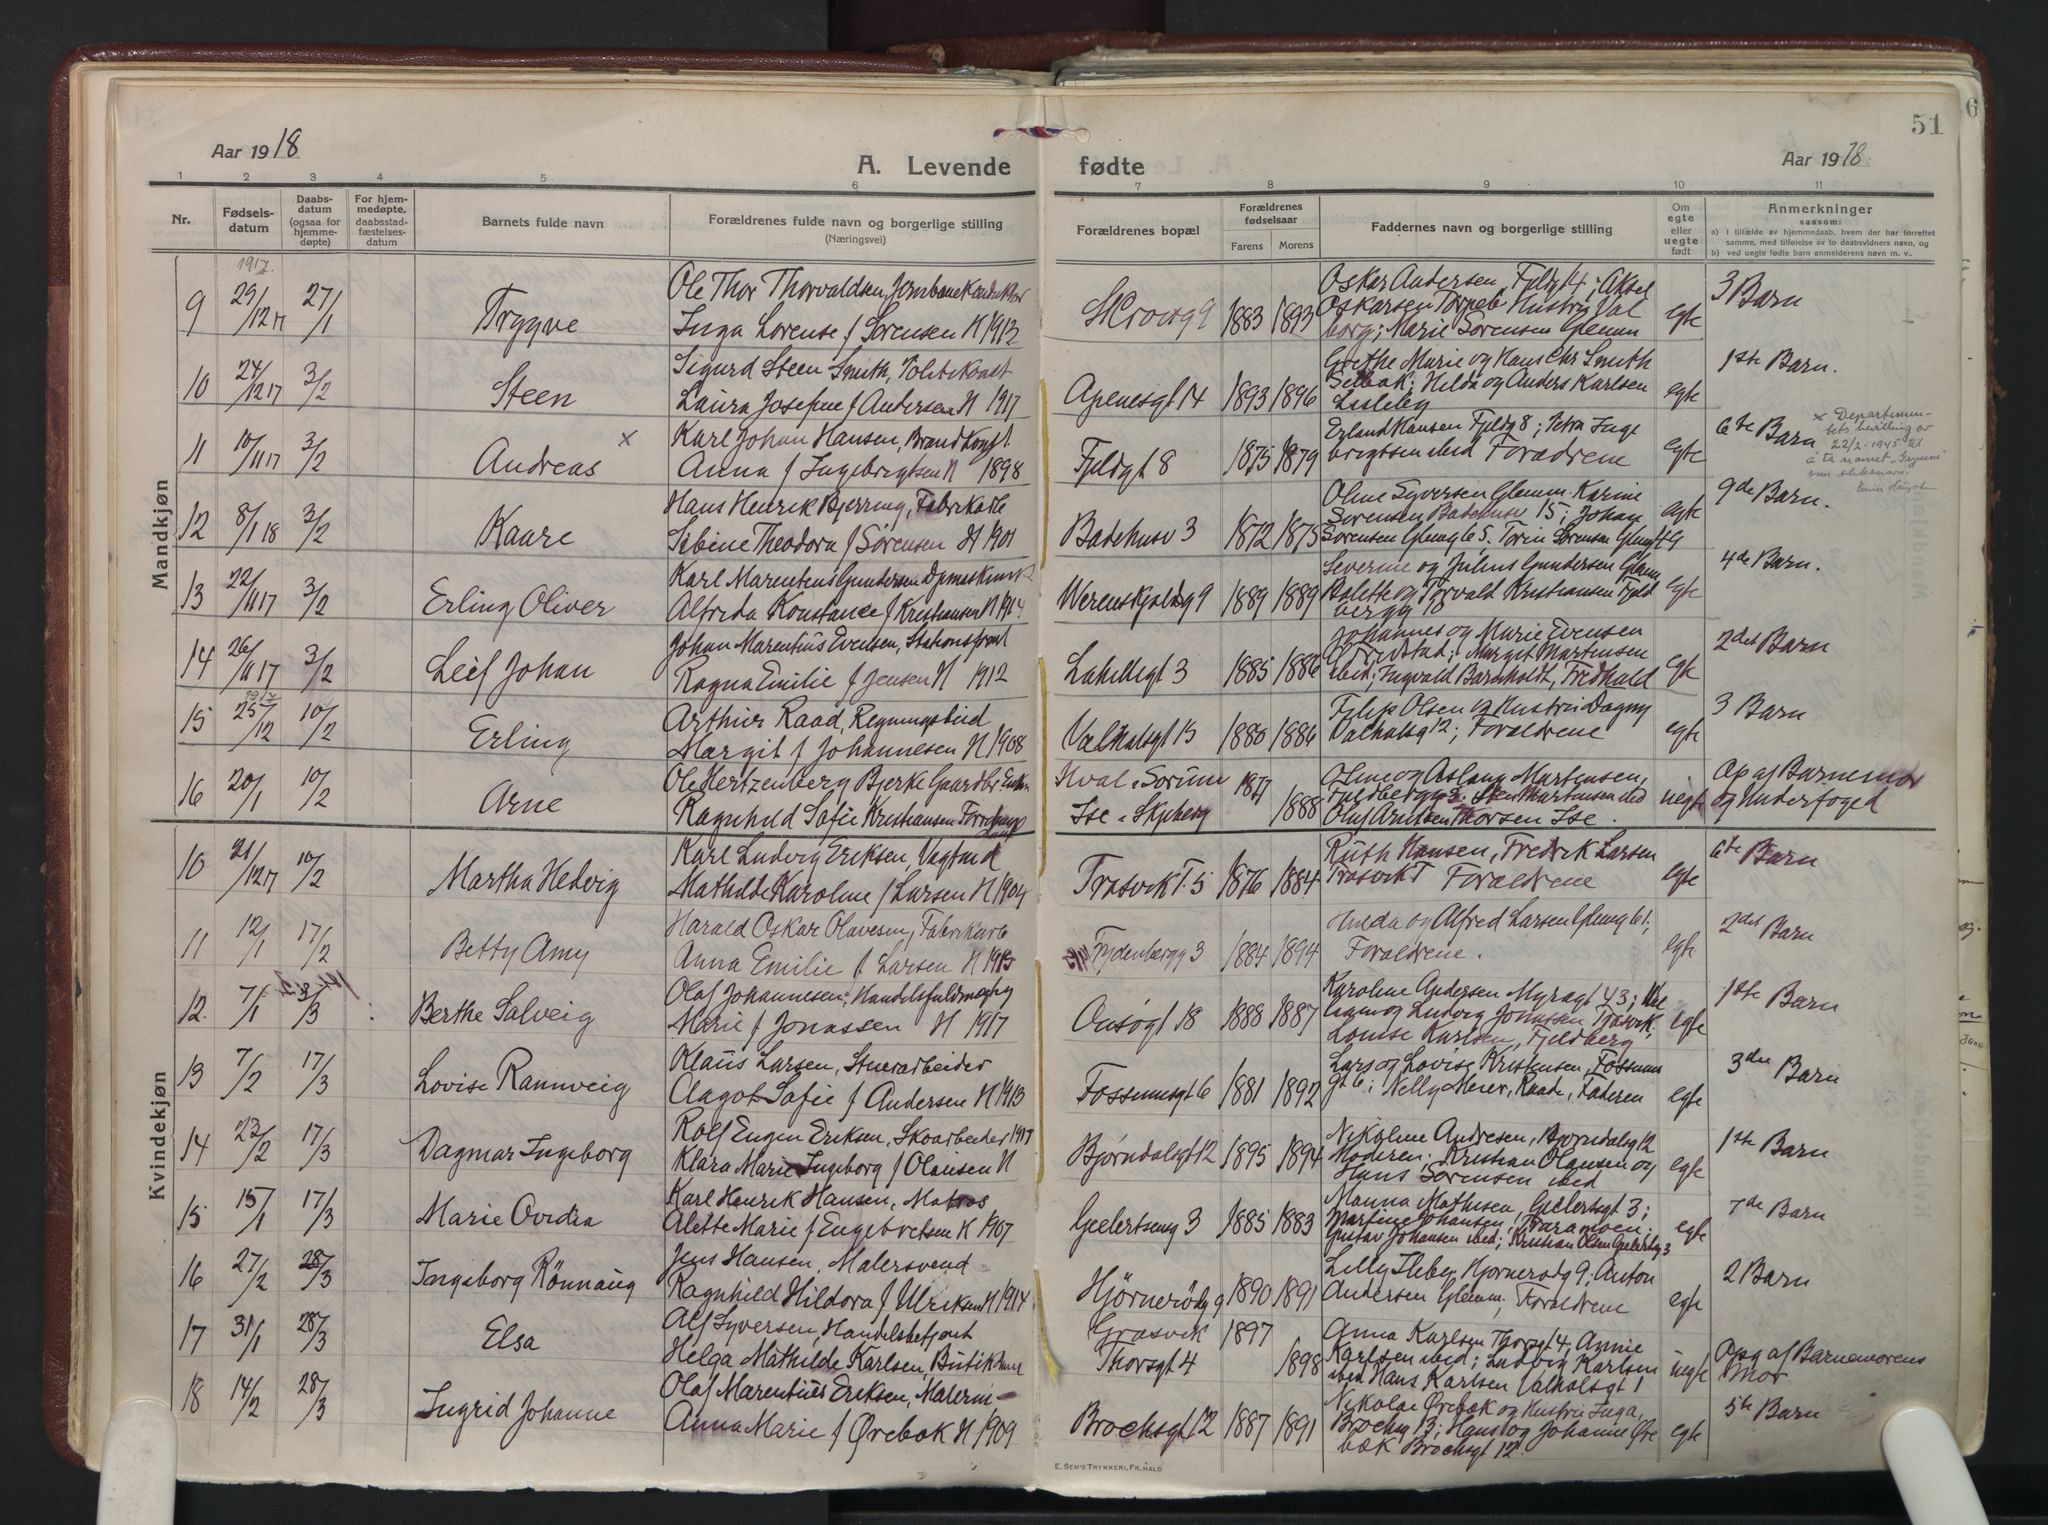 51
6
Aar 1918
A. Levende fødte
Aar 1918
1 2 3 4 5 6 7 8 9 10 11
Nr.
Fødsels-
datum
Daabs-
datum
(ogsaa for
hjemme-
døpte)
For hjem-
medøpte,
daabsstad-
fæstelses-
datum
Barnets fulde navn
Forældrenes fulde navn og borgerlige stilling
(Næringsvei)
Forældrenes bopæl
Forældrenes
fødselsaar
Farens Morens
Faddernes navn og borgerlige stilling
Om
egte
eller
uegte
født
Anmerkninger
saasom:
a) i tilfælde av hjemmedaab, hvem der har forrettet
samme, med tilføielse av to daabsvidners navn, og
b) ved uegte født barn anmelderens navn m. v..
Mandkjøn
1917.
9 29/12 17 27/1 Trygve
Ole Thor Thorvaldsen, Jernbanekonduktør
Inga Lorense f Sørensen N 1912
1883 1893
Oskar Andersen, Fjeldgt 4; Aksel
Oskarsen Torpeb. Hustru Val
borg; Marie Sørensen Glemm
egte 3 Barn
10 24/12 17 3/2 Steen
Sigurd Steen Smith, Politikonst
Laura Josefine f Andersen N 1917
Apenesgt 14 1893 1896
Grethe Marie og Hans Chr Smith
Selbak; Hilda og Anders Karlsen
Lisleby
egte 1ste Barn.
11 10/11 17 3/2 Andreas x
Karl Johan Hansen, Brandkonst.
Anna f Ingebrigtsen N 1898
Fjeldgt 8 1875 1879
Erland Hansen Fjeldg 8; Petra Inge
brigtsen ibid Forældrene
egte 6te Barn
x Departemen-
tets bevilling av
22/2. 1945 til
å ta navnet
som slektsnavn.
12 8/1 18 3/2 Kaare
Hans Henrik Bjerring, Fabrikarb
Sebine Theodora f Sørensen N 1901
Badehusv 3 1872 1875
Oline Syversen Glemm. Karine
Sørensen Badehusv 15; Johan
Sørensen Glemg 65.
egte 9de Barn.
13 22/11 17 3/2 Erling Oliver
Karl Marentius Gundersen
Alfrida Konstance f Kristiansen N 1914.
Werenskjoldg 9 1889 1889
Severine og Julius Gundersen Glem
Valette og Torvald Kristiansen Fjeld
bergg 18
egte 4de Barn.
14 26/11 17 3/2 Leif Johan
Johan Marentius Evensen,
Ragna Emilie f Jensen N 1912
Lahellegt 3 1885 1886
Johannes og Marie Evensen
Fredstad; Margit Martensen
ibid; Ingvald Barnholdt, Fredhald
egte 2det Barn
1917
15 25/12 10/2 Erling
Arthur Raad, Regningsbud
Margit f Johannesen N 1908
Valhalsgt 15 1880 1886
Filip Olsen og Hustru Dagny
Valhalsg 12; Forældrene
egte 3 Barn
16 20/1 10/2 Arne
Ole Hertzenberg Bjerke Gaardbr
Ragnhild Sofie Kristiansen
Hval i Sørum 1877
Ise i Skjeberg 1888
Oline og Aslaug Martinsen,
Fjeldbergg 3; Sten Martensen ibid
Oluf Arntsen Thorsen Ise.
uegte Op af Barnemor
og Underfoged
Kvindekjøn
10 21/12 17 10/2 Martha Hedvig
Karl Ludvig Eriksen, Vagtmd
Mathilde Karoline f Larsen N 1904
Trosvik T. 5 1876 1884
Ruth Hansen, Fredrik Larsen
Trosvik T Forældrene
egte 6te Barn
11 12/1 17/2 Betty Amy
Harald Oskar Olavesen, Fabrikarb
Anna Emilie f Larsen N 1915
Frydenbergg 3 1884 1894
Hulda og Alfred Larsen Glemg 61;
Forældrene.
egte 2det Barn
12. 7/1 3/3 Berthe Solveig
Olaf Johannesen, Handelsfuldmægtig
Marie f Jonassen N 1917
Onsøgt 18 1888 1887
Karoline Andersen Myragt 43;
og Ludvig Jonassen Trosvik;
Louise Karlsen, Fjeldberg
egte 1ste Barn
13 7/2 17/3 Lovise Rannveig
Klaus Larsen, Stuerarbeider
Aagot Sofie f Andersen N 1913
Fossumsgt 6 1881 1892
Lars og Lovise Kristensen, Fossums
gt 6; Nelly Meier, Raade, Faderen
egte 3die Barn
14 23/2 17/3 Dagmar Ingeborg
Rolf Eugen Eriksen, Skoarbeider 1917
Klara Marie Ingeborg f Olausen N
Bjørndalsgt 12 1895 1894
Nikoline Andresen, Bjørndalsg 12
Moderen; Kristian Olausen og
Hans Sørensen ibid
egte 1ste Barn
15 15/1 17/3 Marie Ovidia
Karl Henrik Hansen, Matros
Alette Marie f Engebretsen N 1907
Geelertseng 3 1885 1883
Manna Mathisen, Geelertsgt 3;
Martine Johansen,
Gustav Johansen ibid; Kristian Olsen Geelertsg 3
egte 7de Barn
16 27/2 28/3 Ingeborg Rönnaug
Jens Hansen, Malersvend
Ragnhild Hildora f Ulriksen N 1914
Hjørnerødg 9 1890 1891
Lilly Ileby, Hjørnerødg 9; Anton
Andersen Glemm; Forældrene
egte 2 Barn
17 31/1 28/3 Elsa
Alf Syversen, Handelsbetjent
Helga Mathilde Karlsen, Butikdame
Græsvik 1897
Thorsgt 4 1898
Anna Karlsen Thorsgt 4, Annie
Karlsen ibid; Ludvig Karlsen
ibid Hans Karlsen Valhalsgt 1
uegte Opg af Barnemorens
Mor
18 14/2 28/3 Ingrid Johanne
Olaf Marentius Eriksen, Malerm
Anna Marie f Ørebæk N 1909
Brochsgt 12 1887 1891
Nikolai Ørebæk og Hustru Inga,
Brochsg 13; Hans og Johanne Øre
bæk Brochsgt 12.
egte 5te Barn
E. SEM'S TRYKKERI, FR.HALD